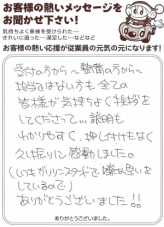 お客様の熱いメッセージを
お聞かせ下さい!
気持ちよく車検を受けられた…
きれいに直った…満足した…などなど
お客様の熱い応援が従業員の元気の元になります!
受付の方から〜整備の方から
担当ではない方も全ての
皆様が気持ちよく接し
てくださって…説明も
わかりやすく、押し付けもなく
久しぶりに感動しました。
しているので)
ありがとうございました!!
ありがとうございました。